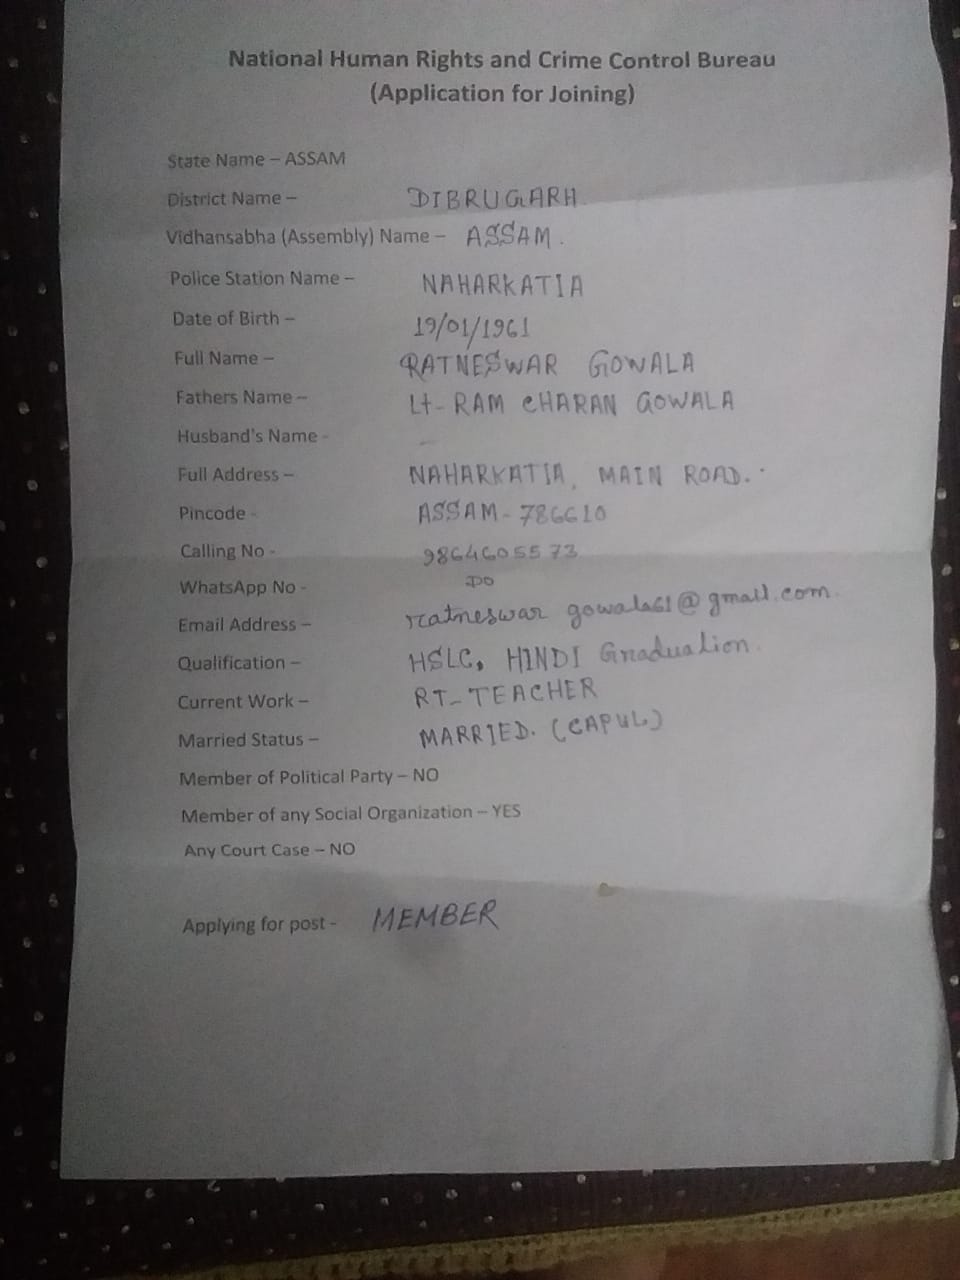 National Human Rights and Crime Control Bureau
(Application for Joining)
State Name – ASSAM
District Name – DIBRUGARH
Vidhansabha (Assembly) Name – ASSAM.
Police Station Name – NAHARKATIA
Date of Birth – 19/01/1961
Full Name – RATNESWAR GOWALA
Fathers Name – Lt- RAM CHARAN GOWALA
Husband's Name - –
Full Address – NAHARKATIA, MAIN ROAD.
Pincode - ASSAM - 786610
Calling No - 9864605573
WhatsApp No - DO
Email Address – ratneswar gowala61@gmail.com.
Qualification – HSLC, HINDI Graduation.
Current Work – RT- TEACHER
Married Status – MARRIED. (CAPUL)
Member of Political Party – NO
Member of any Social Organization – YES
Any Court Case – NO
Applying for post - MEMBER